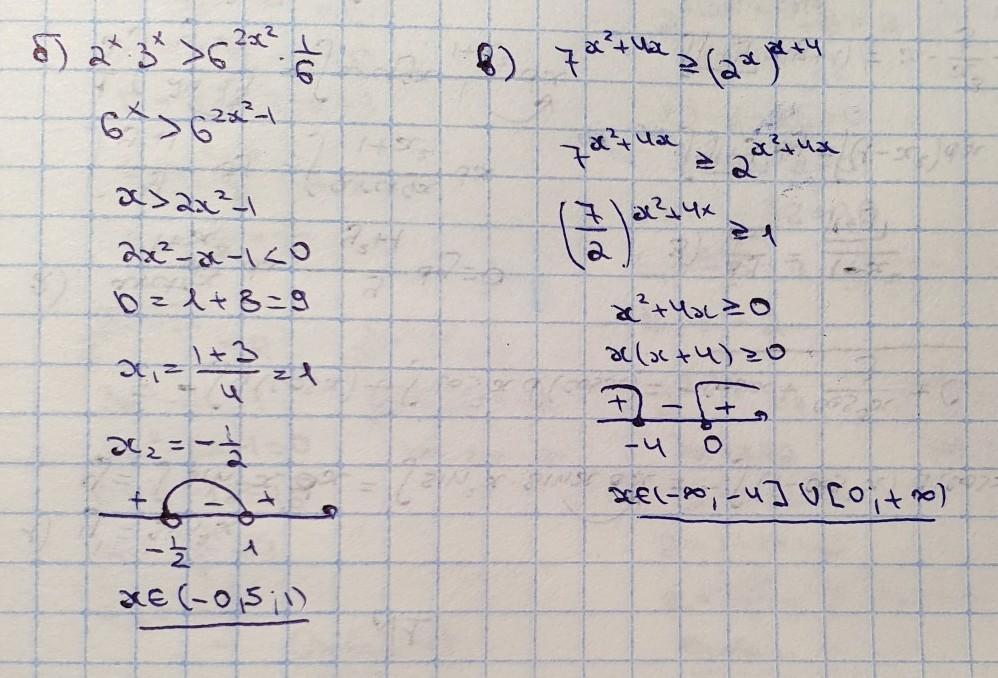 б) 2ˣ · 3ˣ > 6^(2x²) · 1/6
6ˣ > 6^(2x²-1)
x > 2x²-1
2x² - x - 1 < 0
D = 1 + 8 = 9
x₁ = (1+3)/4 = 1
x₂ = -1/2
+ - +
-1/2 1
x ∈ (-0,5; 1)
в) 7^(x²+4x) ≥ (2ˣ)^(x+4)
7^(x²+4x) ≥ 2^(x²+4x)
(7/2)^(x²+4x) ≥ 1
x² + 4x ≥ 0
x(x+4) ≥ 0
+ - +
-4 0
x ∈ (-∞; -4] ∪ [0; +∞)